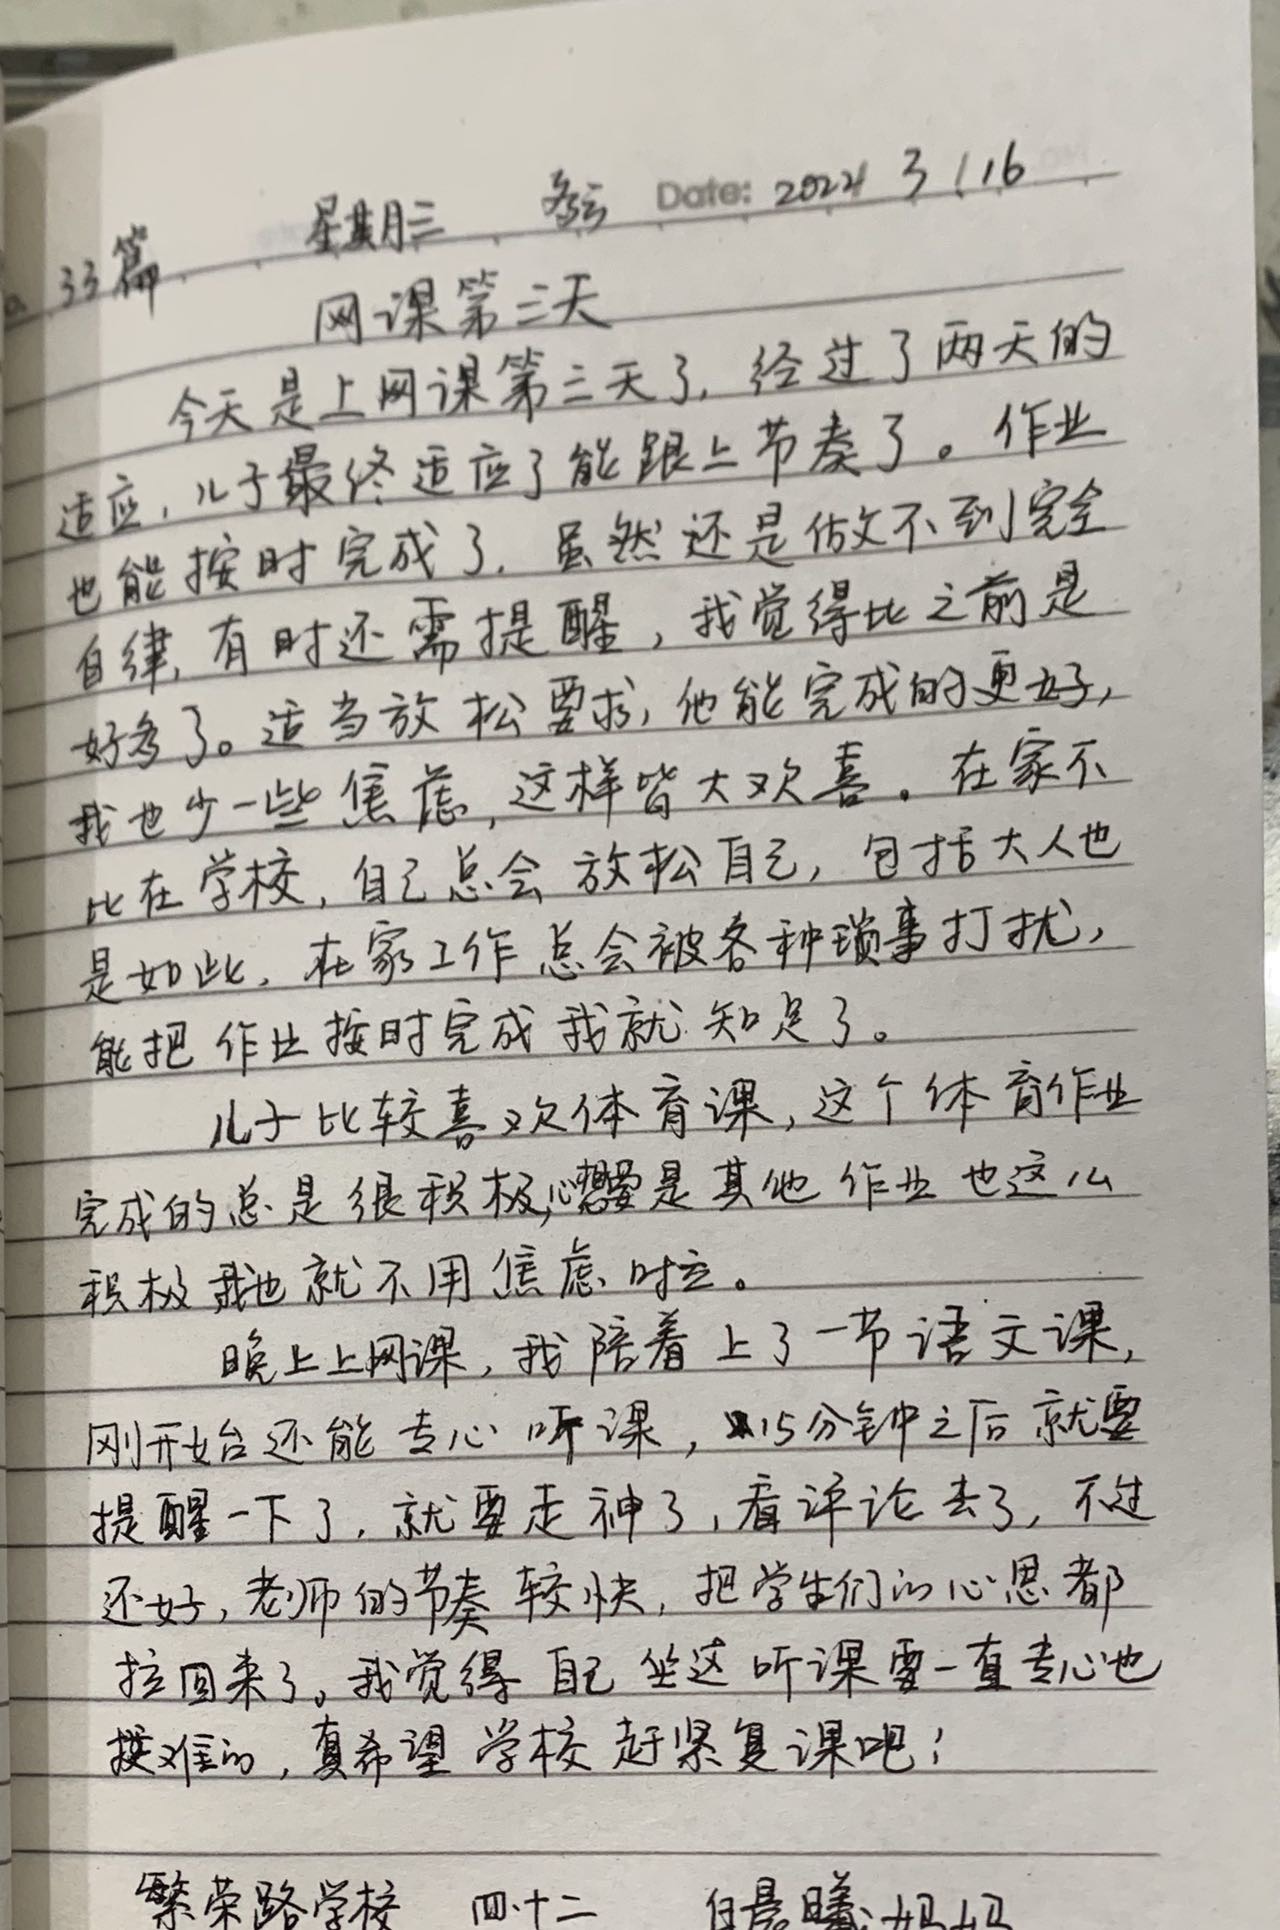 星期三 多云 Date: 2022 3/16
33篇
网课第三天
今天是上网课第三天了，经过了两天的
适应，儿子最终适应了能跟上节奏了。作业
也能按时完成了，虽然还是做不到完全
自律，有时还需提醒，我觉得比之前是
好多了。适当放松要求，他能完成的更好，
我也少一些焦虑，这样皆大欢喜。在家不
比在学校，自己总会放松自己，包括大人也
是如此，在家工作总会被各种琐事打扰，
能把作业按时完成我就知足了。
儿子比较喜欢体育课，这个体育作业
完成的总是很积极，心想要是其他作业也这么
积极我也就不用焦虑啦。
晚上上网课，我陪着上了一节语文课，
刚开始还能专心听课，15分钟之后就要
提醒一下了，就要走神了，看评论去了，不过
还好，老师的节奏较快，把学生们的心思都
拉回来了。我觉得自己坐这听课要一直专心也
挺难的，真希望学校赶紧复课吧！
繁荣路学校 四·十二 晨曦妈妈